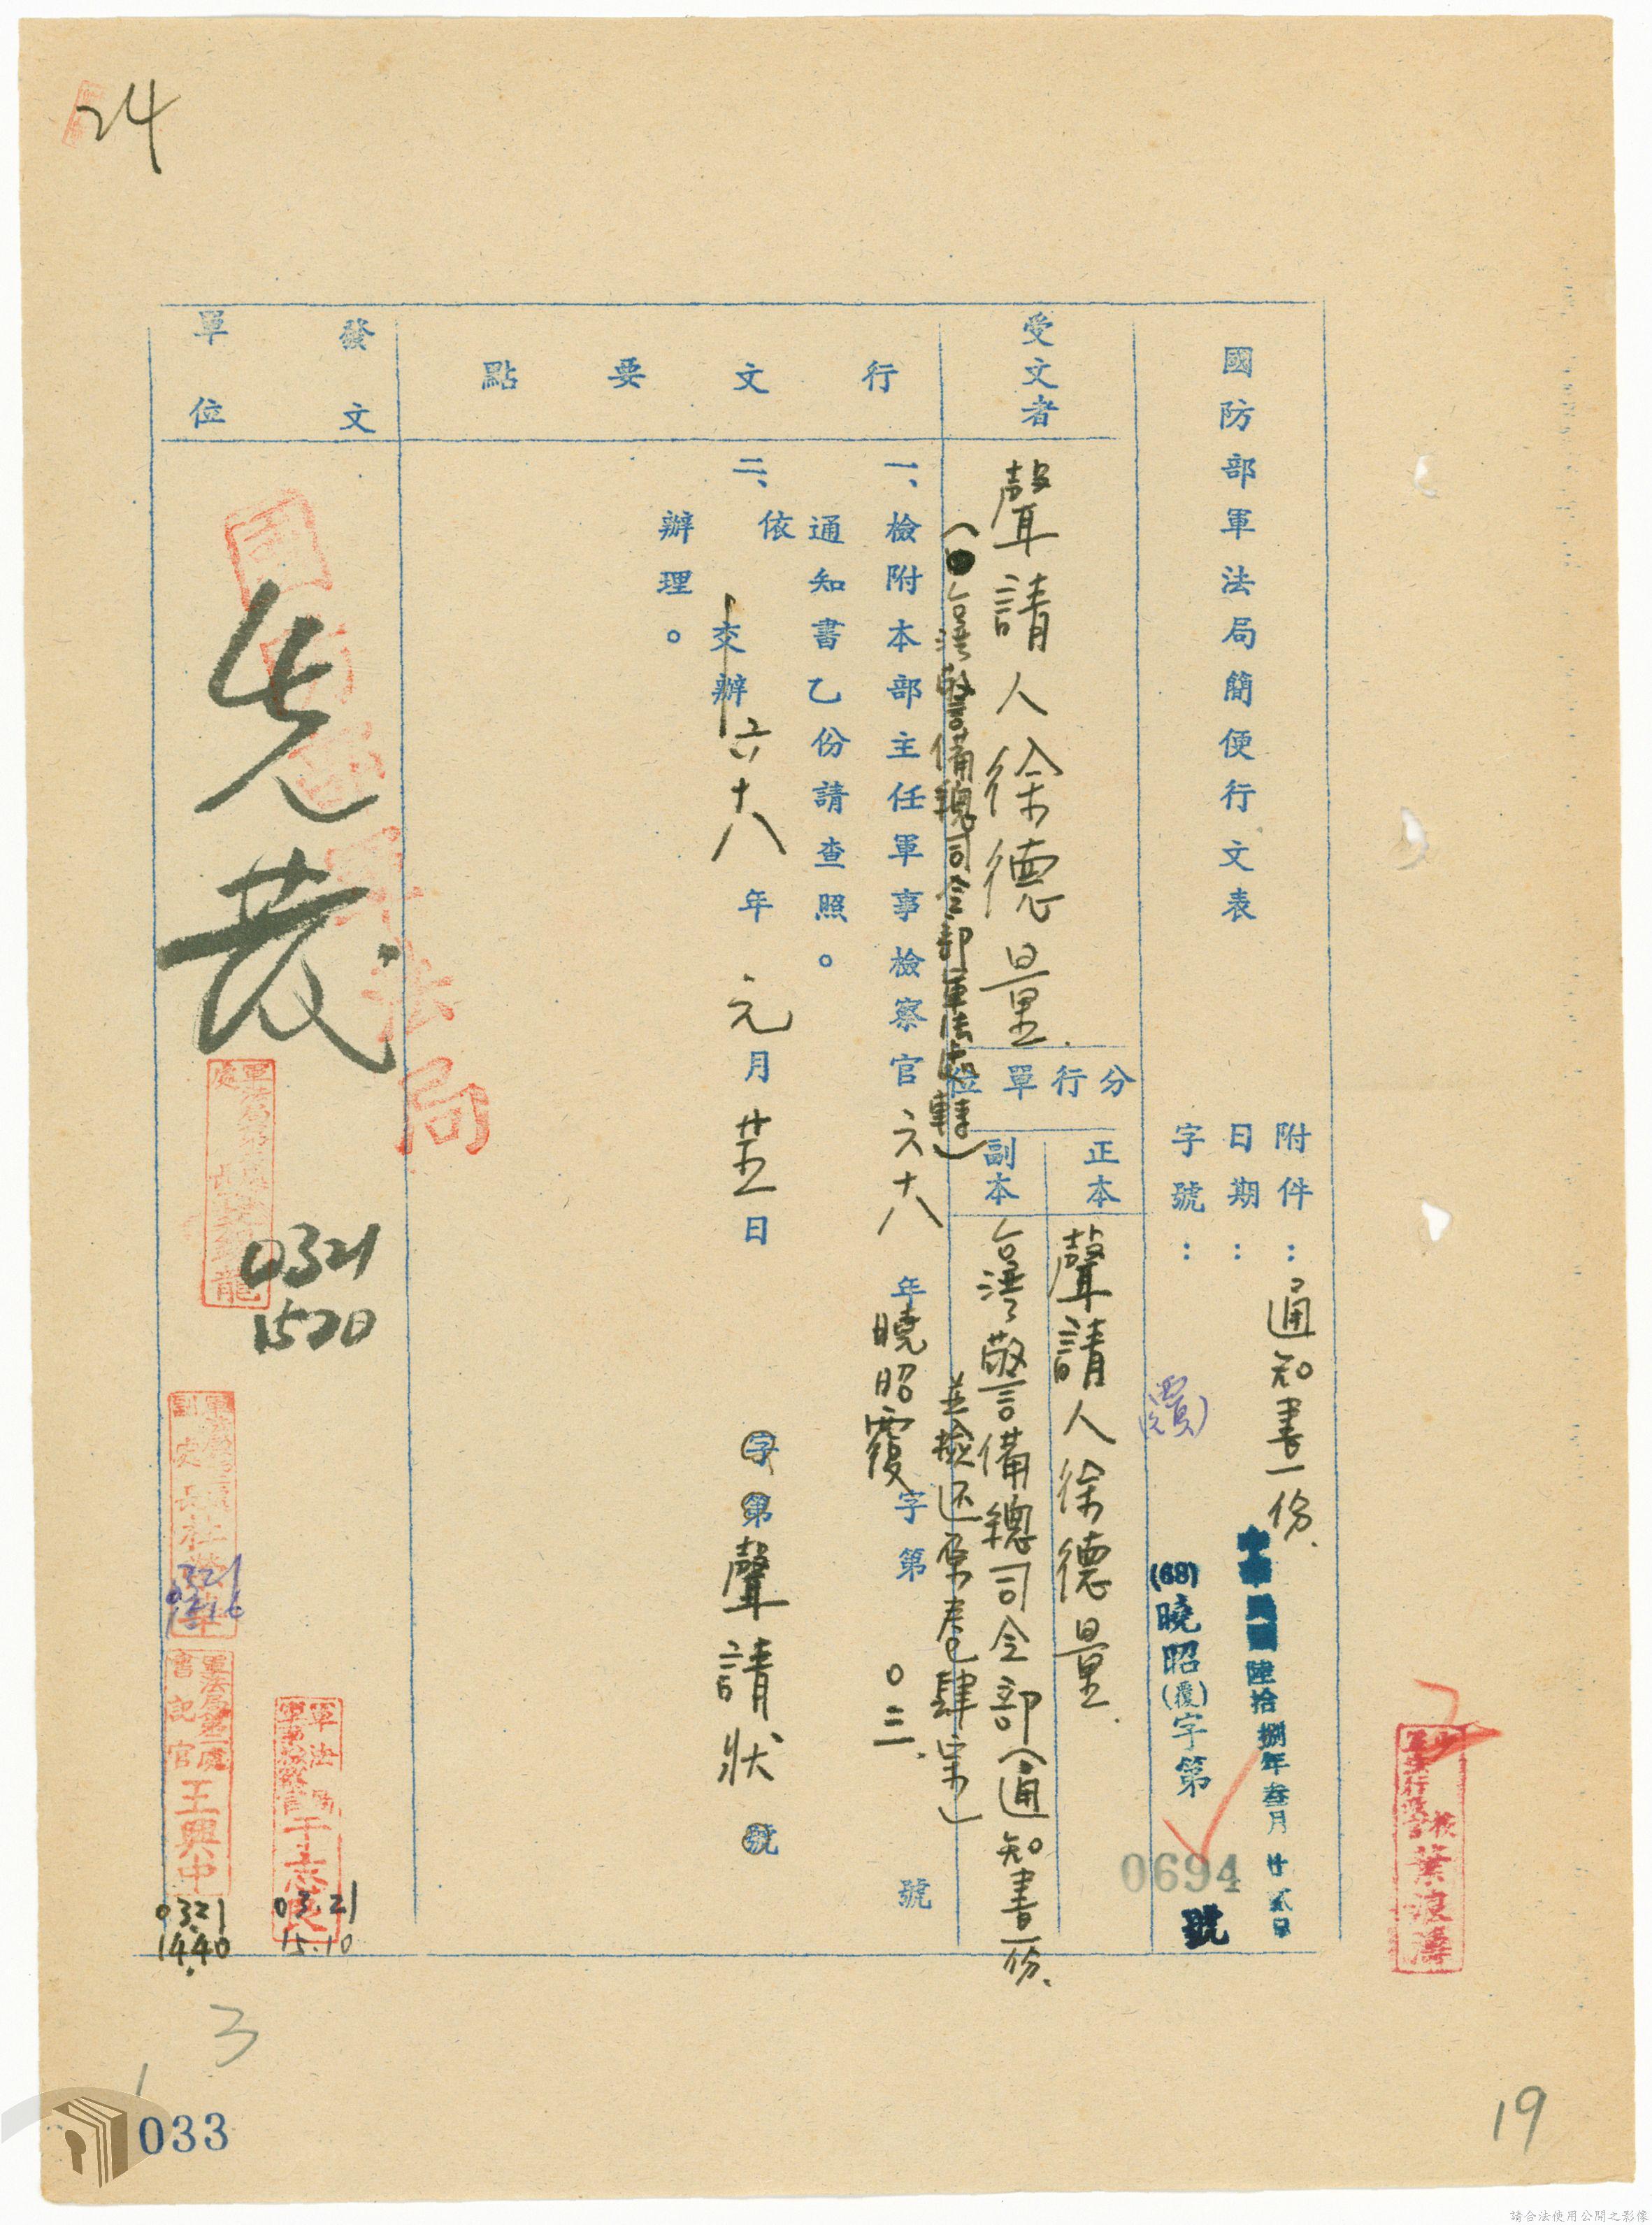 24
國防部軍法局簡便行文表
附件：通知書一份.
日期：中華民國陸拾捌年叁月廿貳日
字號：(68)曉昭(覆)字第0694號
受文者
聲請人徐德量.
(台灣警備總司令部軍法處轉)
分行單位
正本
聲請人徐德量.
副本
台灣警備總司令部(通知書一份.
並檢还原卷肆宗)
行文要點
一、檢附本部主任軍事檢察官六十八年曉昭覆字第〇三.號
通知書乙份請查照。
二、依
交辦六十八年元月廿五日字第聲請狀號
辦理。
發文單位
國防部軍法局
先發
0321
1520
0321
軍法局
于志良
03.21
15.10
書記官
王興中
0321
14.40
葉浪濤
3
033
19
請合法使用公開之影像